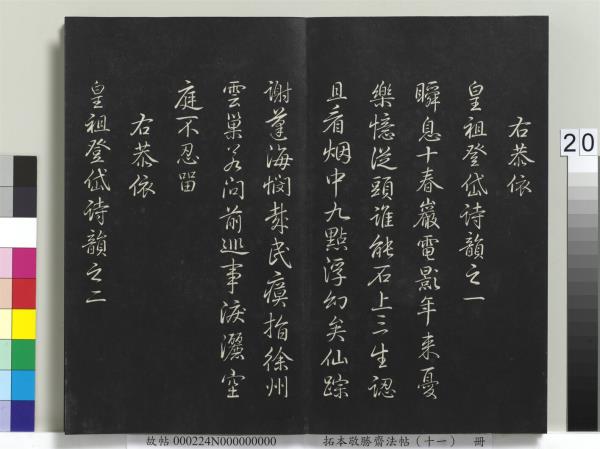 右恭依
皇祖登岱詩韻之一
瞬息十春巖電影年来憂
樂憶從頭誰能石上三生認
且看烟中九點浮幻矣仙踪
謝蓬海憫哉民瘼指徐州
雲巢若問前巡事淚灑空
庭不忍留
右恭依
皇祖登岱詩韻之二
20
故帖 000224N000000000 拓本敬勝齋法帖（十一） 冊